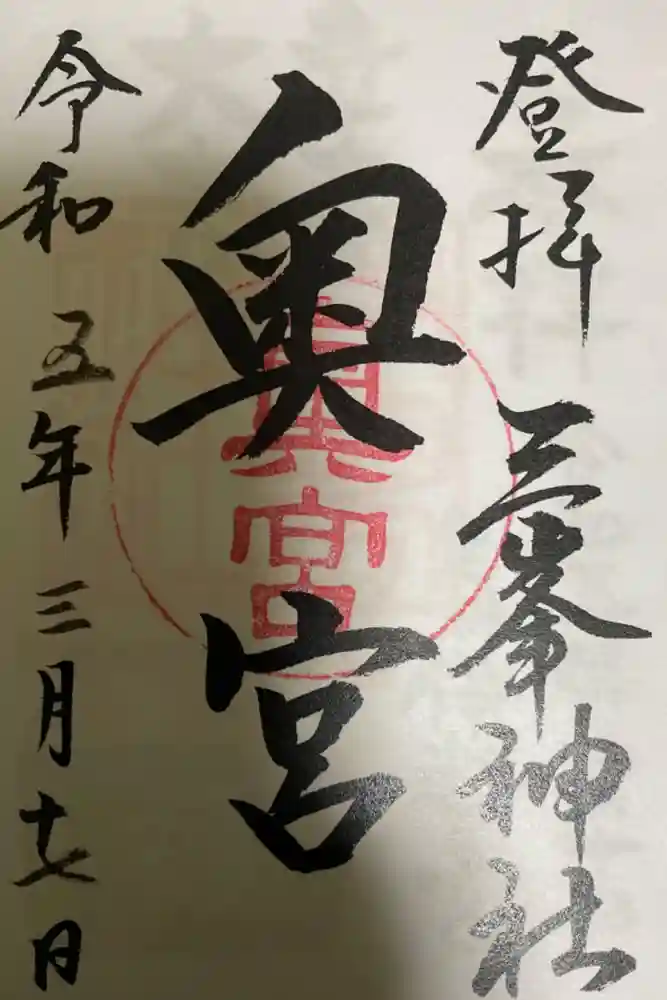 登拝 三峯神社
奥宮
奥宮
令和五年三月十七日